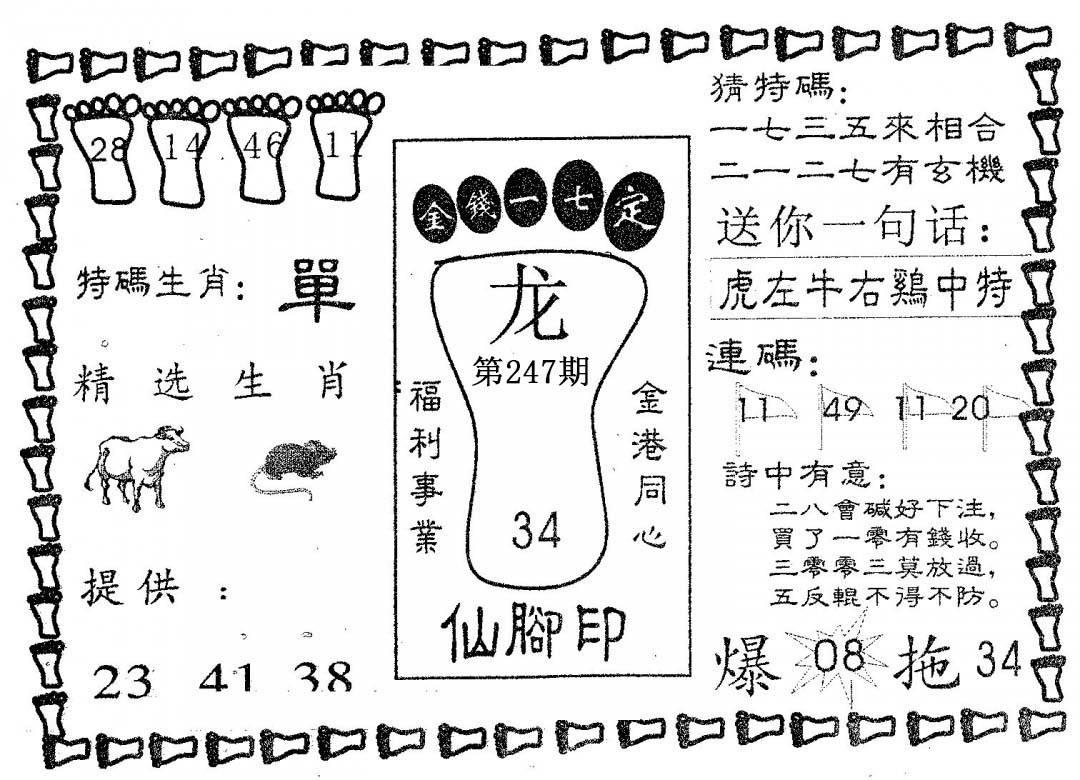 28 14 46 11
特碼生肖：單
精选生肖
提供：
23 41 38
金錢一七定
龙
第247期
福利事業
金港同心
34
仙腳印
猜特碼：
一七三五來相合
二一二七有玄機
送你一句话：
虎左牛右鷄中特
連碼：
11 49 11 20
詩中有意：
二八會碱好下注，
買了一零有錢收。
三零零三莫放過，
五反輥不得不防。
爆 08 拖 34